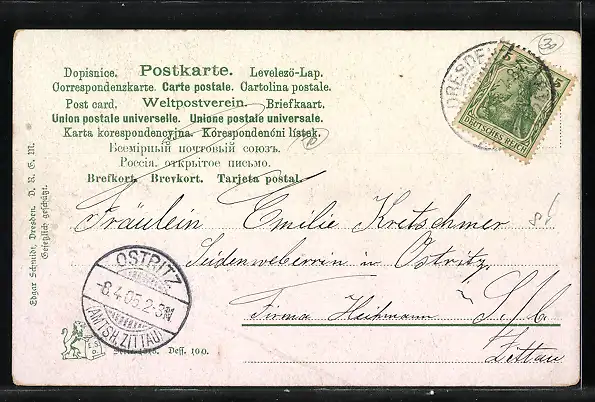 Dopisnice. Postkarte. Levelező-Lap.
Correspondenzkarte. Carte postale. Cartolina postale.
Post card. Weltpostverein. Briefkaart.
Union postale universelle. Unione postale universale.
Karta korespondencyjna. Korespondenční lístek.
Всемірный почтовый союзъ.
Россія. открытое письмо.
Brefkort. Brevkort. Tarjeta postal.
DRESDEN
DEUTSCHES REICH
30
Fräulein Emilie Kretschmer
Seidenweberrin in Ostritz
Firma Heikmann S./C.
Zittau
OSTRITZ
-8.4.05.2-3N
(AMTSH. ZITTAU)
Edgar Schmidt, Dresden. D. R. G. M.
Gesetzlich geschützt.
Dess. 100.